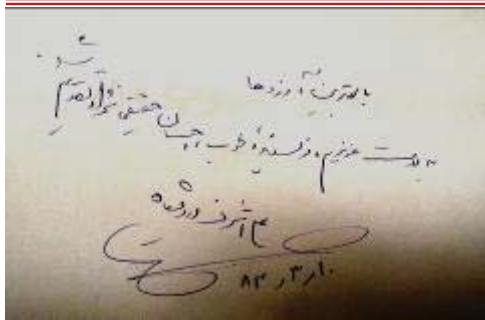 با بهترین آرزوها
به دوست عزیزم، نویسندهٔ خوب، احسان حقیقی نژاد تقدیم
شد.
م اشرف درویشیان
۸۳٫۳٫۱۰